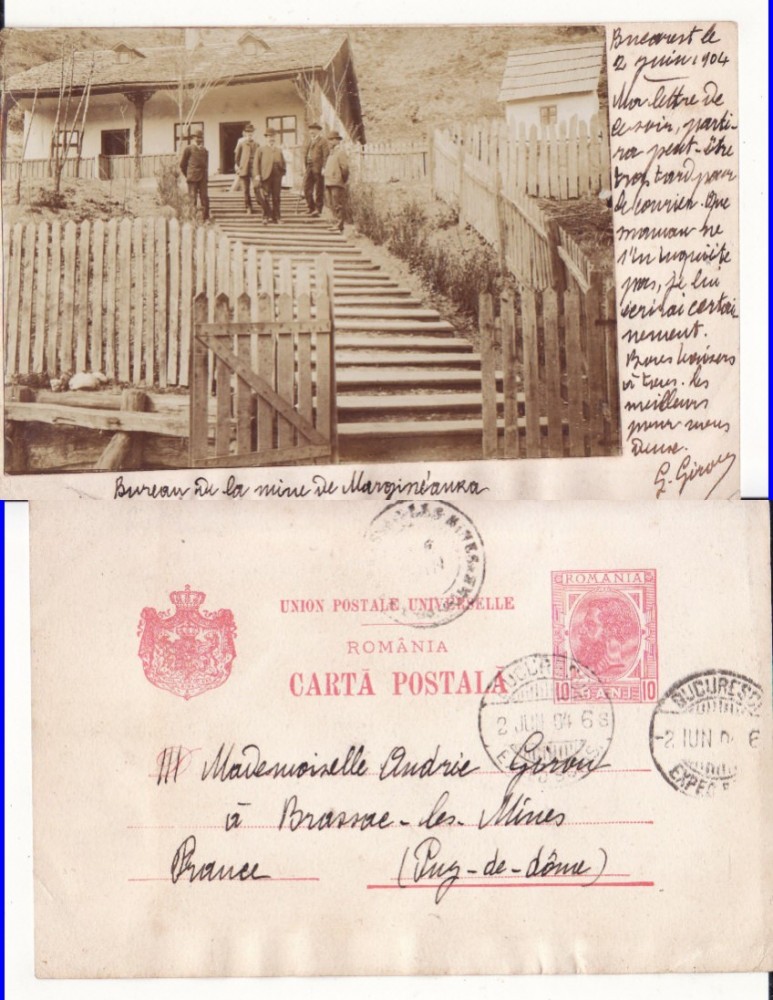 Bucarest le
2 juin 1904
Ma lettre de
ce soir, parti-
ra peut-être
trop tard pour
le courrier. Que
maman ne
s'en inquiète
pas, je lui
écrirai certai-
nement.
Bons baisers
à tous. les
meilleurs
pour vous
deux.
G. Girou
Bureau de la mine de Marginéanka
UNION POSTALE UNIVERSELLE
ROMÂNIA
CARTĂ POSTALĂ
ROMANIA
10 BANI 10
BUCURESCI
2 JUN 04 6
BUCURESCI
-2 IUN 04 6
EXPED
LES MINES
Mademoiselle Andrée Girou
à Brassac-les-Mines
France (Puy-de-dôme)